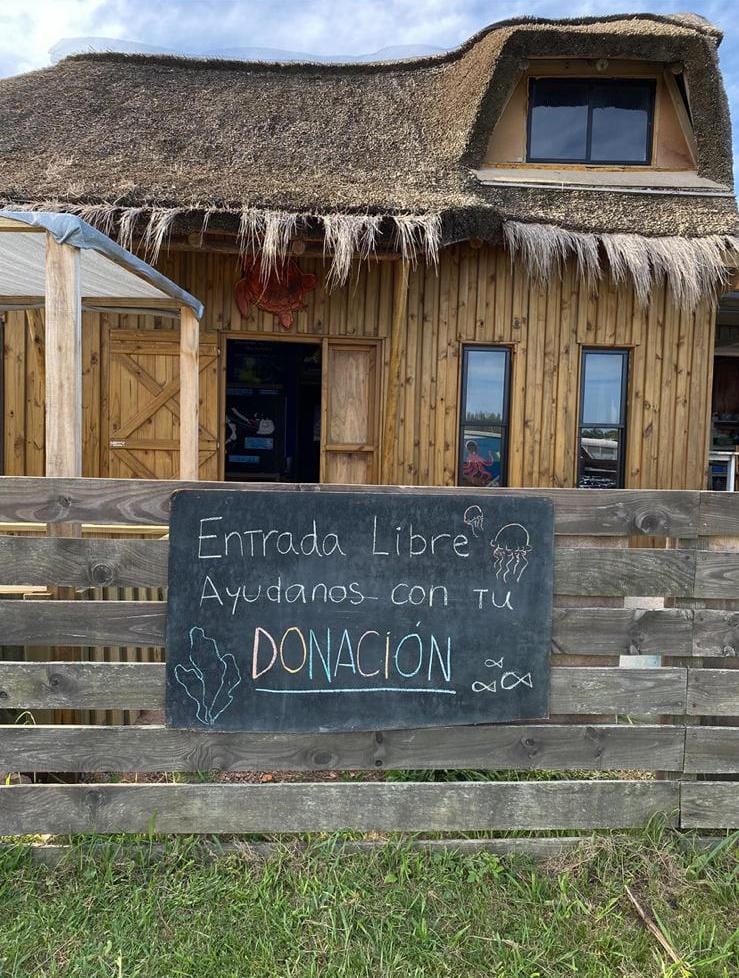 Entrada Libre
Ayudanos con tu
DONACIÓN